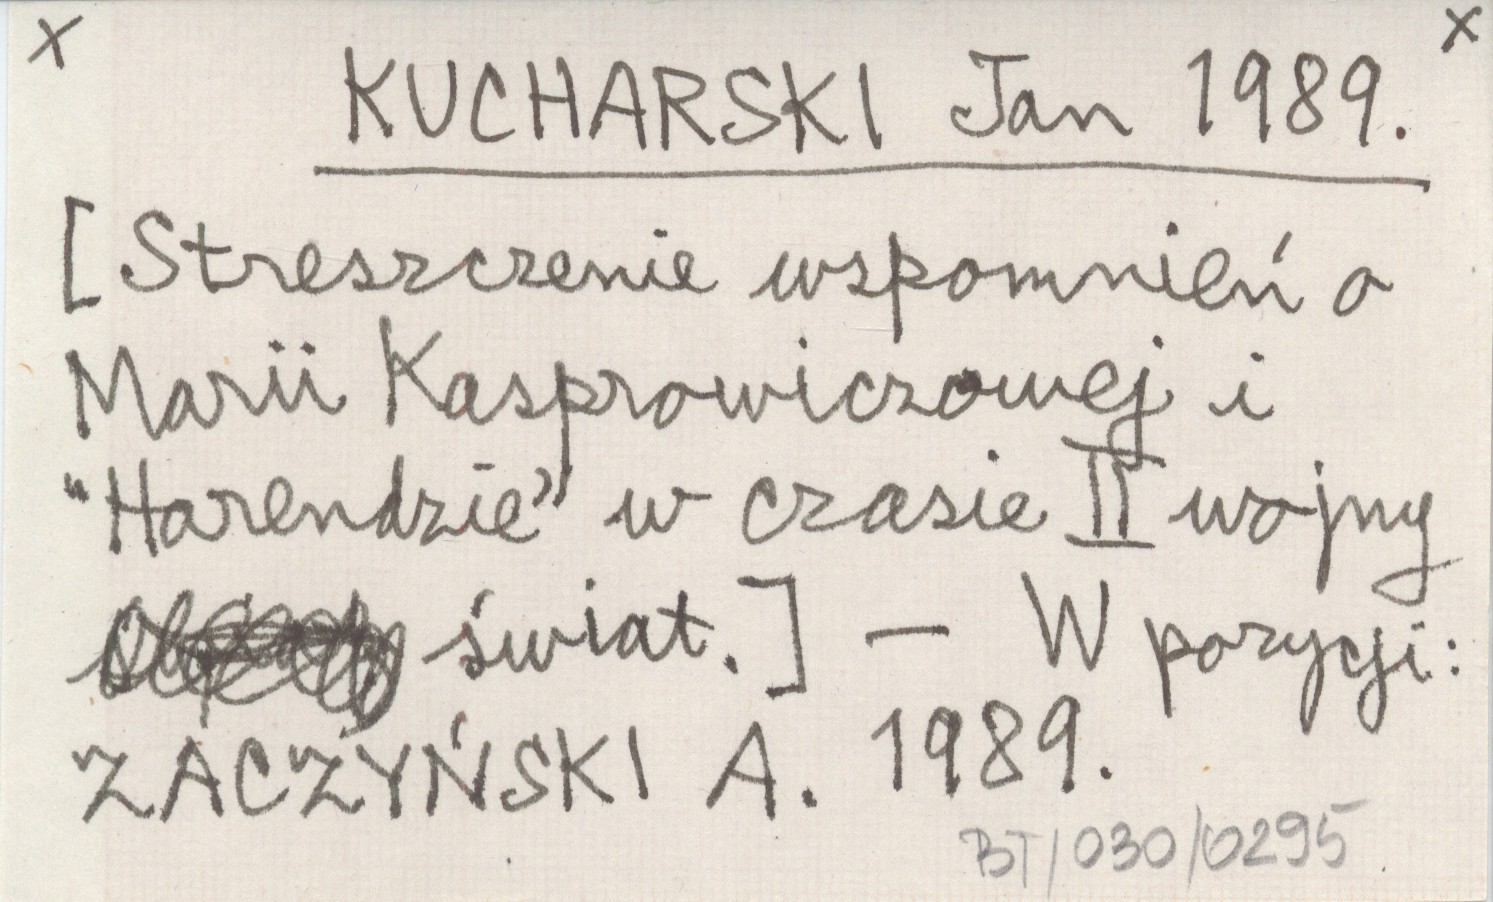 x x
KUCHARSKI Jan 1989.
[Streszczenie wspomnień o
Marii Kasprowiczowej i
"Harendzie" w czasie II wojny
świat.] — W pozycji:
ZACZYŃSKI A. 1989.
BT/030/0295